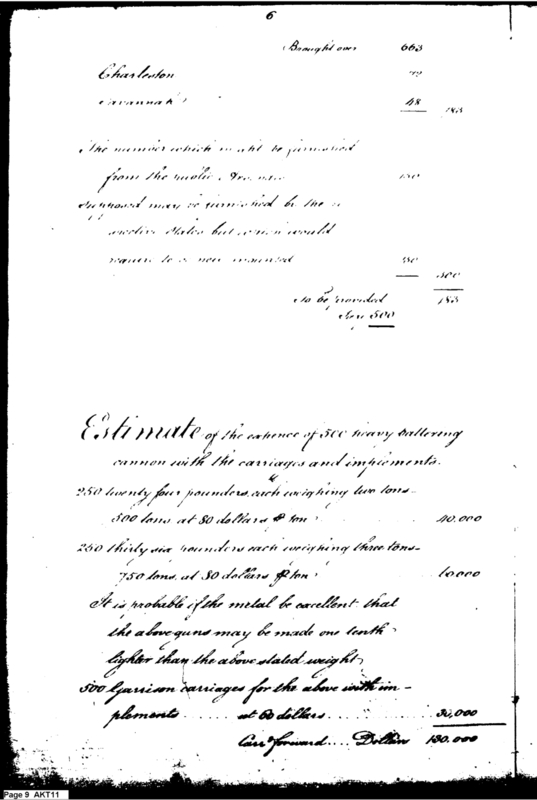 6
Brought over 663
Charleston
Savannah 48
The number which might be furnished
from the public
Supposed may be furnished by the
states but which would
require to be new mounted
300
To be provided 183
Say 500
Estimate of the expence of 500 heavy battering
cannon with the carriages and implements.
250 twenty four pounders, each weighing two tons
500 tons at 80 dollars ⅌ ton 40.000
250 thirty six pounders each weighing three tons
750 tons, at 80 dollars ⅌ ton 60000
It is probable if the metal be excellent that
the above guns may be made one tenth
lighter than the above stated weight
500 Garrison carriages for the above with im-
plements ...... at 60 dollars ...... 30,000
Carrd forward .... Dollars 130.000
Page 9 AKT11